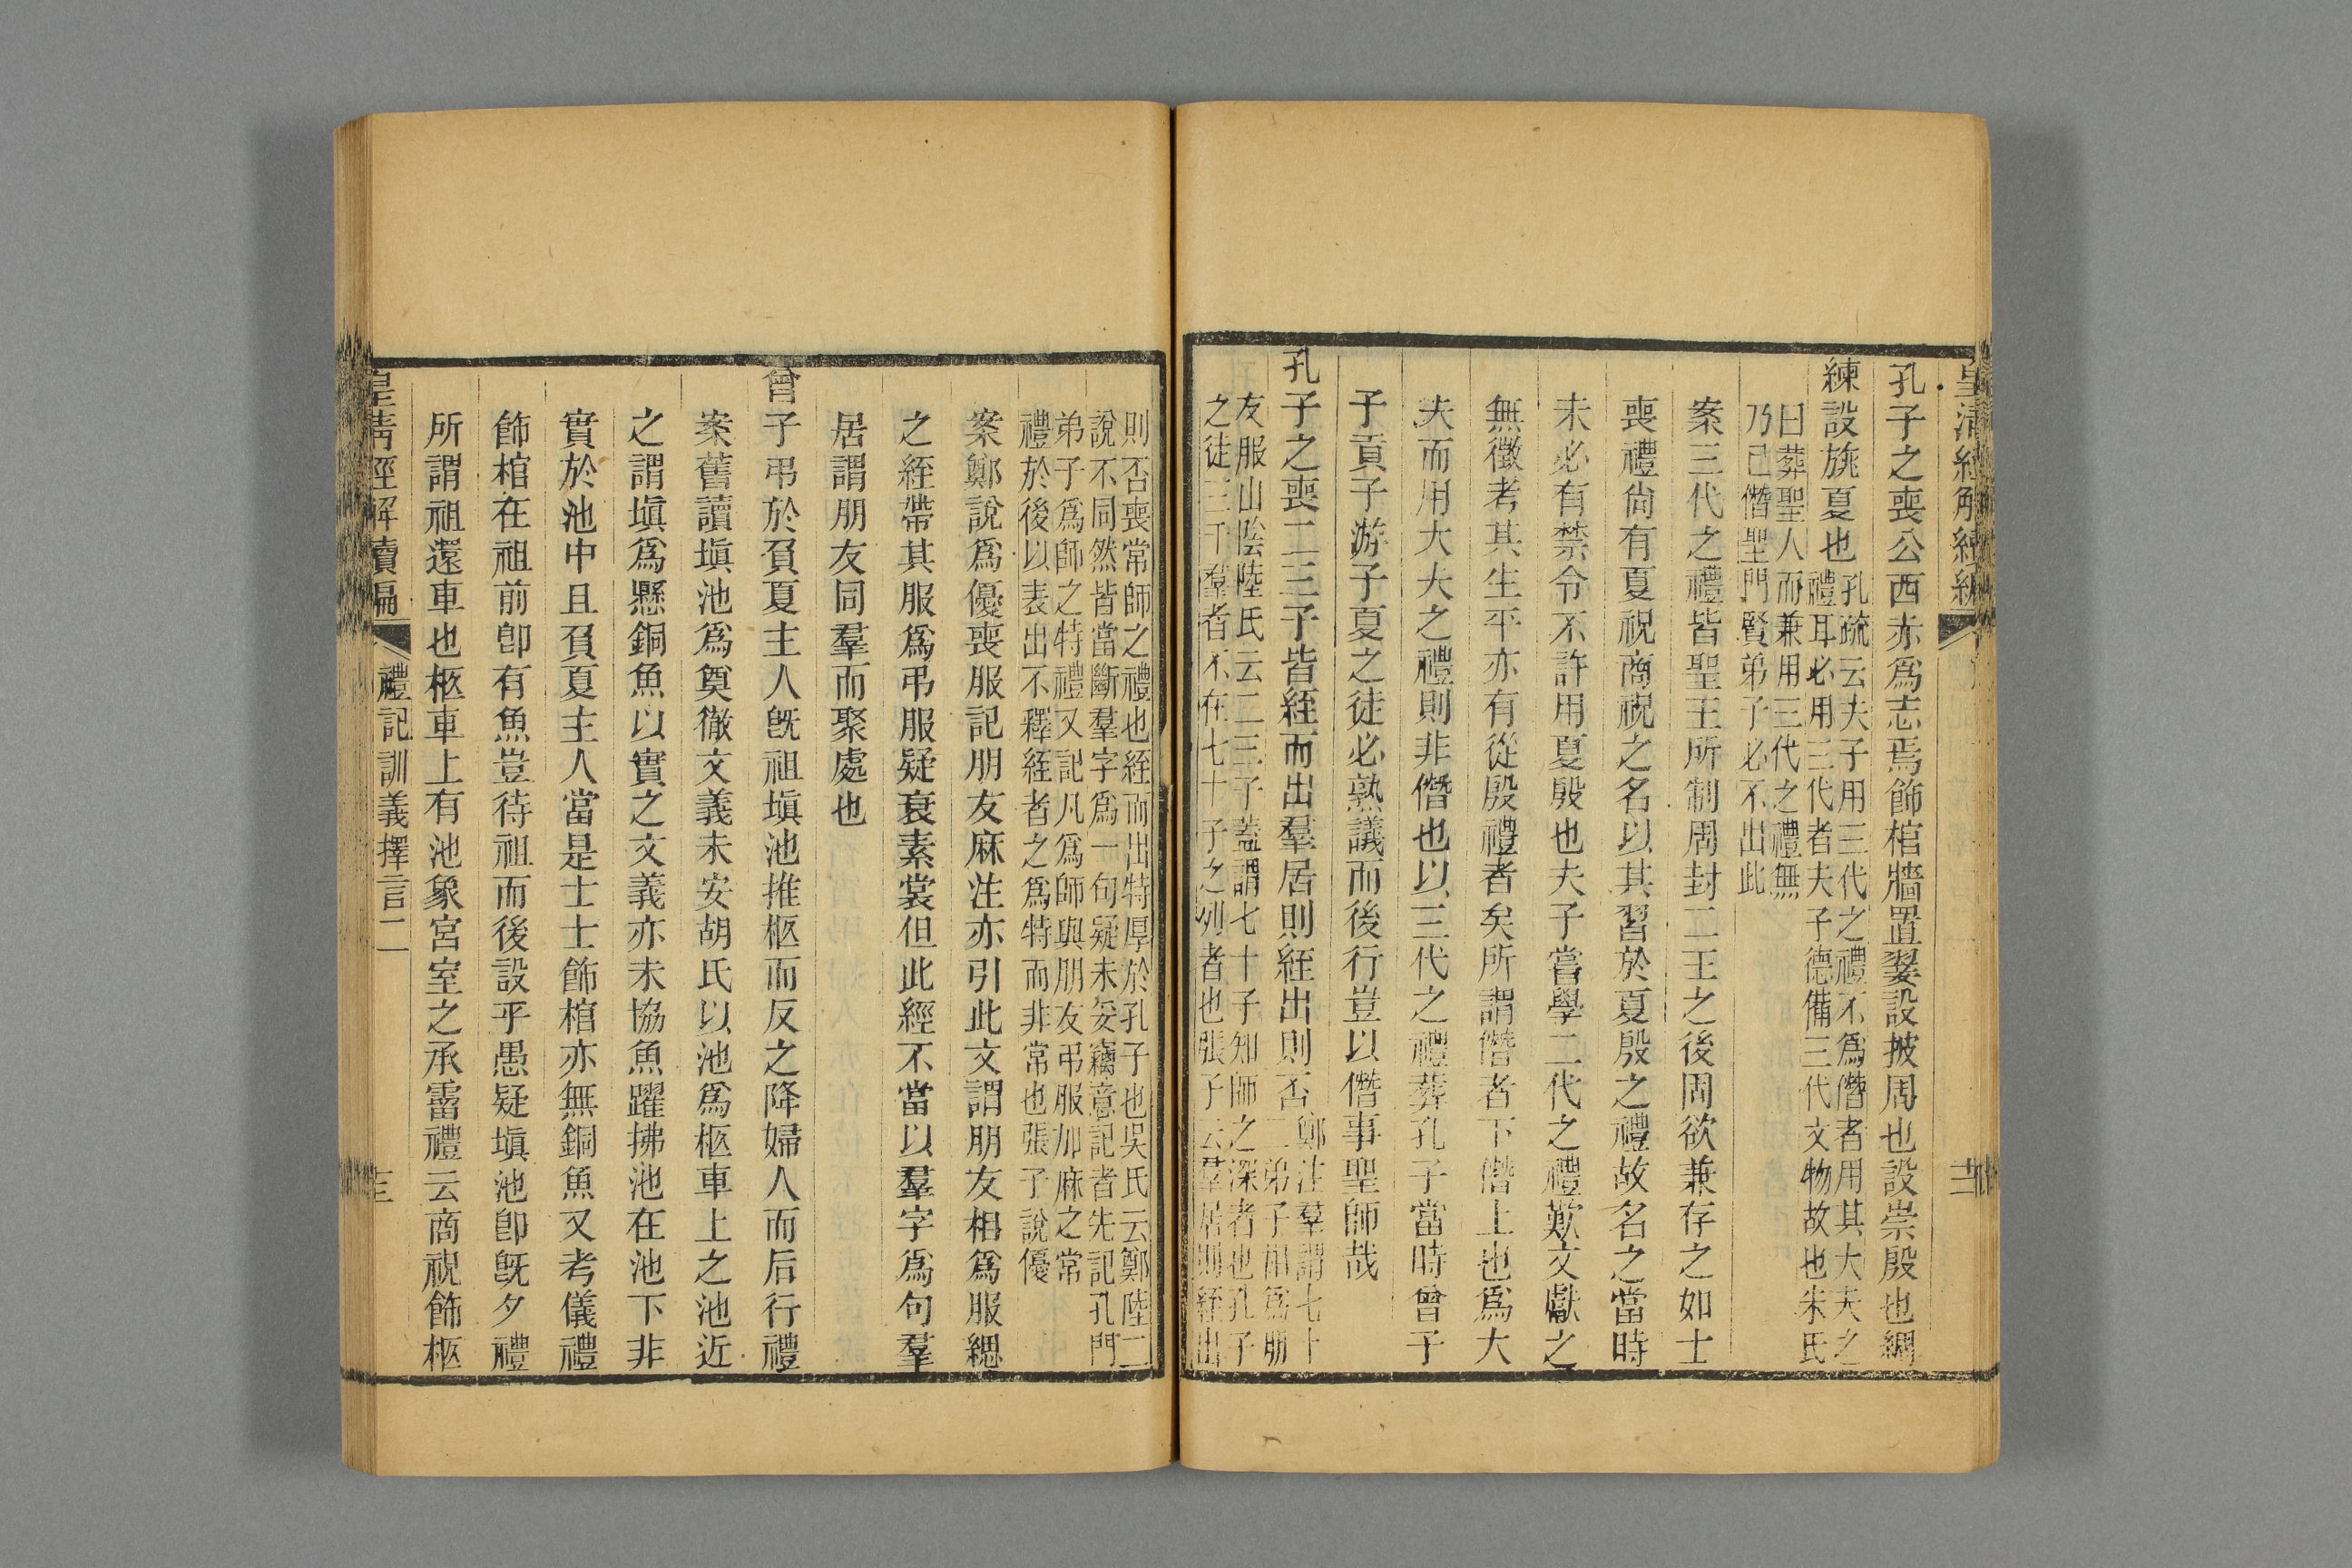 孔子之喪公西赤爲志焉飾棺牆置翣設披周也設崇殷也綢
練設旐夏也
孔疏云夫子用三代之禮不爲僭者用其大夫之
禮耳必用三代者夫子德備三代文物故也朱氏
曰葬聖人而兼用三代之禮無
乃已僭聖門賢弟子必不出此
案三代之禮皆聖王所制周封二王之後周欲兼存之如士
喪禮尙有夏祝商祝之名以其習於夏殷之禮故名之當時
未必有禁令不許用夏殷也夫子嘗學二代之禮歎文獻之
無徵考其生平亦有從殷禮者矣所謂僭者下僭上也爲大
夫而用大夫之禮則非僭也以三代之禮葬孔子當時曾子
子貢子游子夏之徒必熟議而後行豈以僭事聖師哉
孔子之喪二三子皆絰而出羣居則絰出則否
鄭注羣謂七十
二弟子相爲朋
友服山陰陸氏云二三子蓋謂七十子知師之深者也孔子
之徒三千羣者不在七十子之列者也張子云羣居則絰出
則否喪常師之禮也絰而出特厚於孔子也吳氏云鄭陸二
說不同然皆當斷羣字爲一句疑未妥竊意記者先記孔門
弟子爲師之特禮又記凡爲師與朋友弔服加麻之常
禮於後以表出不釋絰者之爲特而非常也張子說優
案鄭說爲優喪服記朋友麻注亦引此文謂朋友相爲服緦
之絰帶其服爲弔服疑衰素裳但此經不當以羣字爲句羣
居謂朋友同羣而聚處也
曾子弔於負夏主人旣祖塡池推柩而反之降婦人而后行禮
案舊讀塡池爲奠徹文義未安胡氏以池爲柩車上之池近
之謂塡爲懸銅魚以實之文義亦未協魚躍拂池在池下非
實於池中且負夏主人當是士士飾棺亦無銅魚又考儀禮
飾棺在祖前卽有魚豈待祖而後設乎愚疑塡池卽旣夕禮
所謂祖還車也柩車上有池象宮室之承霤禮云商祝飾柩
皇淸經解續編
禮記訓義擇言二